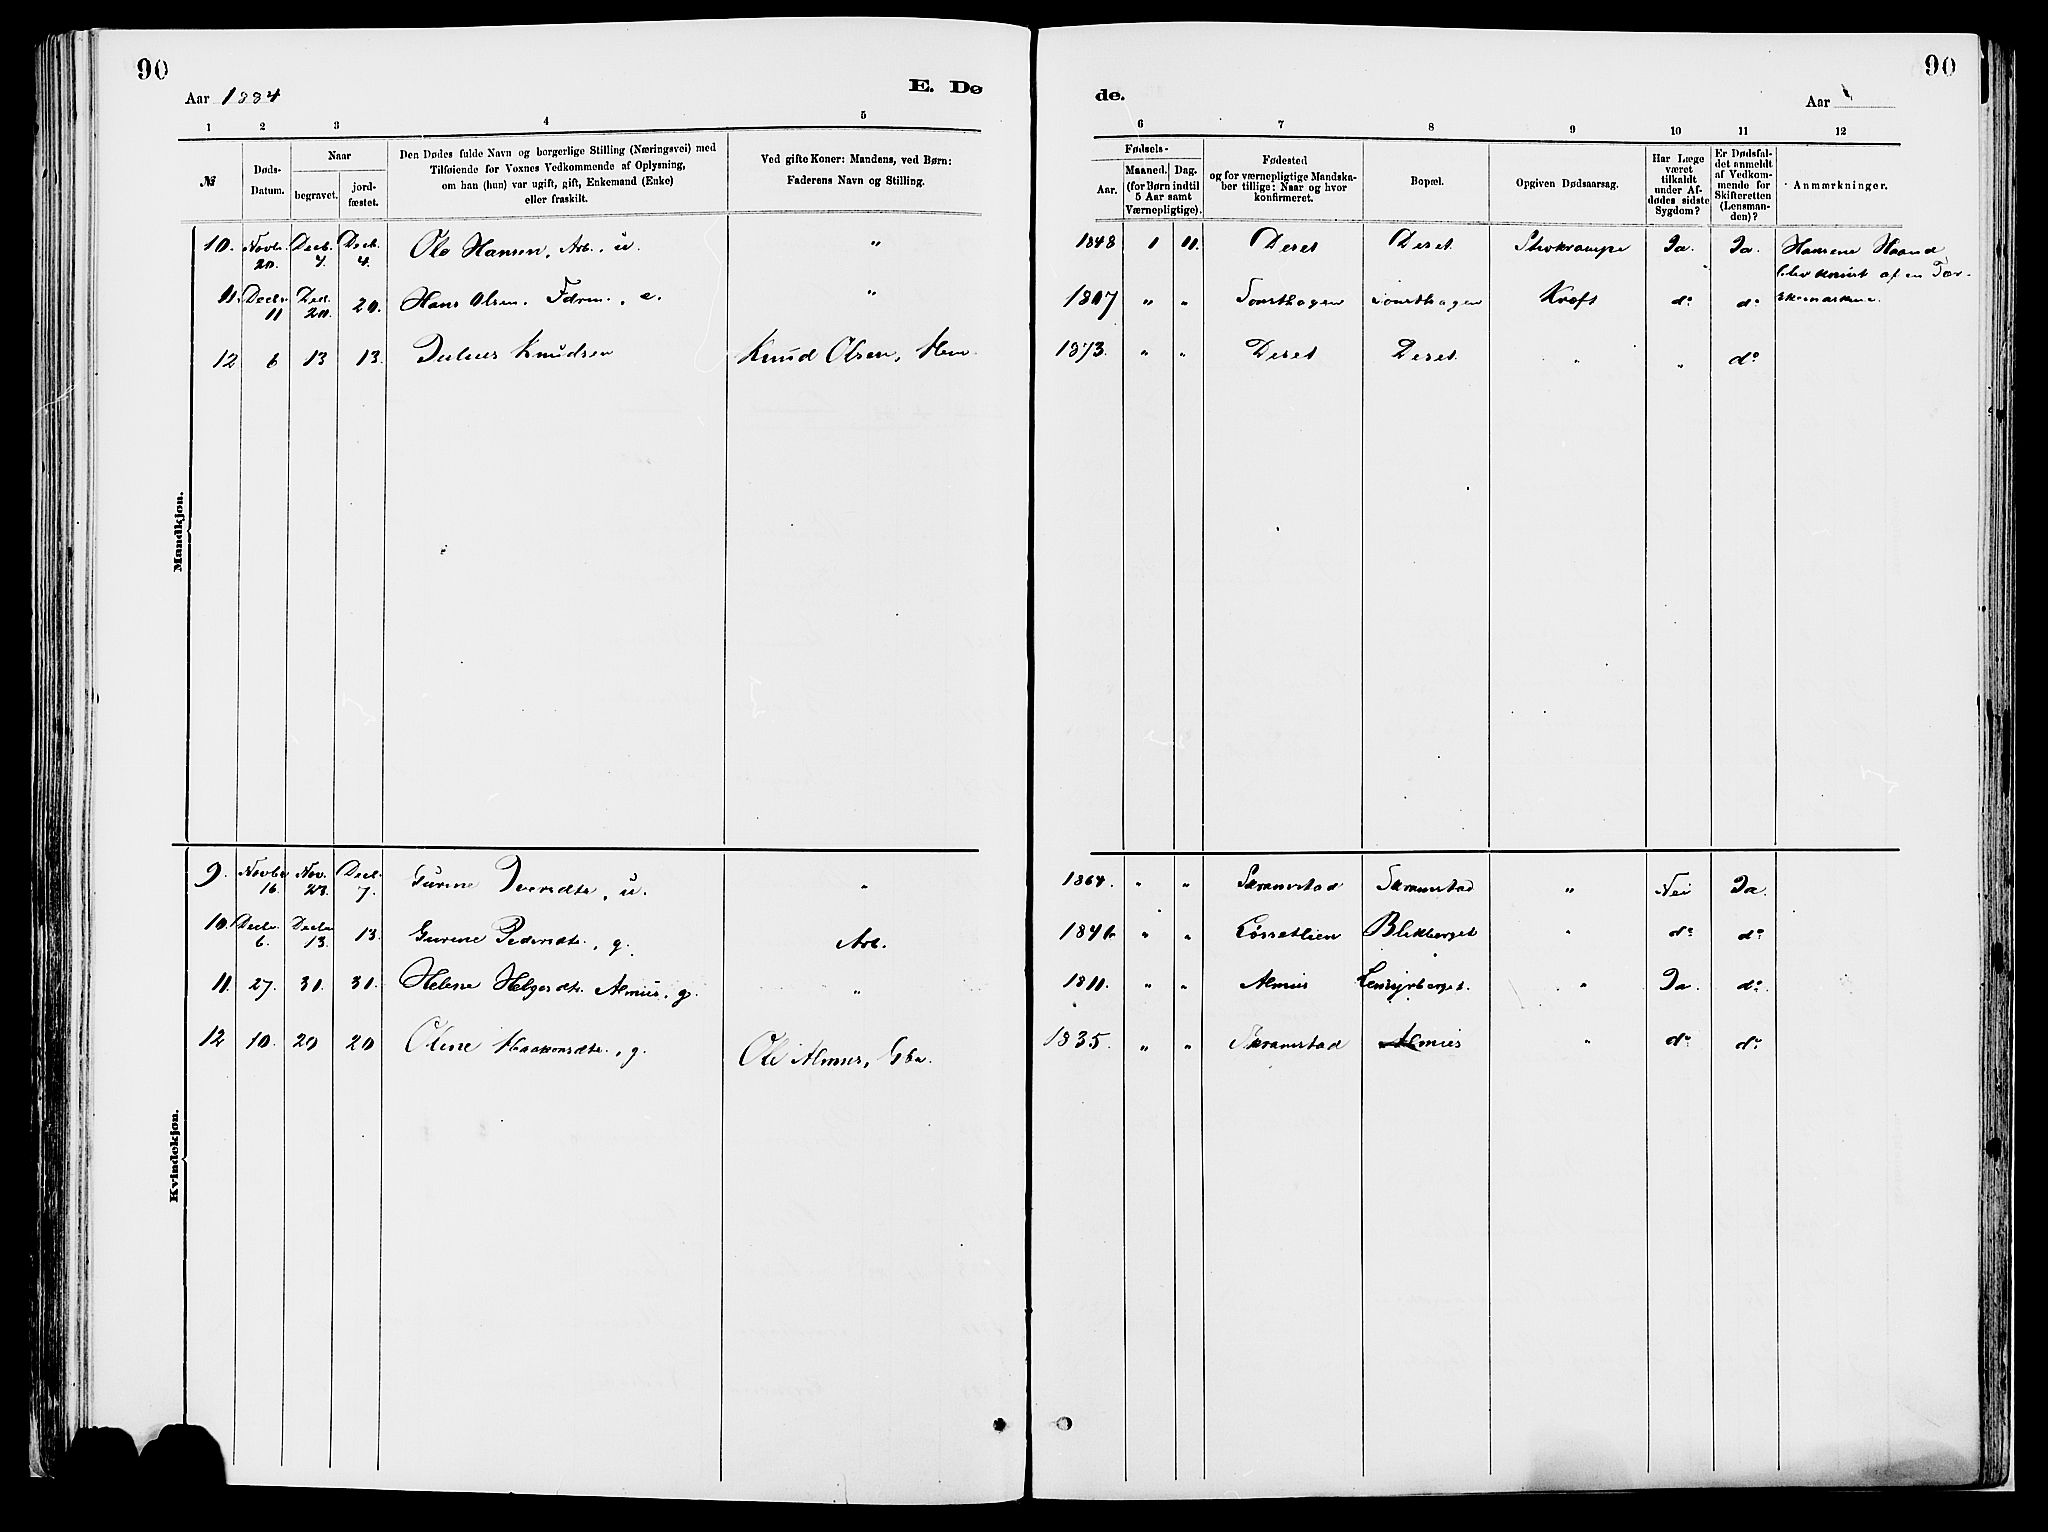 90
Aar 1884
E. Dø
de.
Aar
90
1 2 3 4 5 6 7 8 9 10 11 12
№
Døds-
Datum.
Naar
begravet.
jord-
fæstet.
Den Dødes fulde Navn og borgerlige Stilling (Næringsvei) med
Tilføiende for Voxnes Vedkommende af Oplysning,
om han (hun) var ugift, gift, Enkemand (Enke)
eller fraskilt.
Ved gifte Koner: Mandens, ved Børn:
Faderens Navn og Stilling.
Fødsels-
Aar.
Maaned. Dag.
(for Børn indtil
5 Aar samt
Værnepligtige).
Fødested
og for værnepligtige Mandska-
ber tillige: Naar og hvor
konfirmeret.
Bopæl.
Opgiven Dødsaarsag.
Har Læge
været
tilkaldt
under Af-
dødes sidste
Sygdom?
Er Dødsfal-
det anmeldt
af Vedkom-
mende for
Skifteretten
(Lensman-
den)?
Anmærkninger.
Mandkjøn.
10. Novbr. 20. Decb. 4. Decb. 4. Ole Hansen, Arb., u. " 1848 1 11. Deset Deset Ja. Ja. Hansens Haand
blev knust af en Tær-
skemaskine.
11. Decbr 11 Dec. 20. 20. Hans Olsen, e. " 1807 " " Kræft do do
12 6 13 13. Julius Knudsen Knud Olsen, 1873. " " Deset Deset. " " do
Kvindekjøn.
9. Novbr 16. Nov. 23. Decb. 7. Gurine Iversdtr, u. " 1864. " " Skramstad Skramstad " Nei Ja.
10. Decbr. 6. Decbr 13. 13. Gurine Pedersdtr., g. Arb. " " Løssetlien Blikberget " do do
11. 27. 31. 31. Helene Helgesdtr. Almus, g. " 1811. " " Almus " Ja. do
12 10. 20 20 Oline Haakonsdtr., g. Ole Almus, Gbr. 1835. " " Skramstad Almus " do do